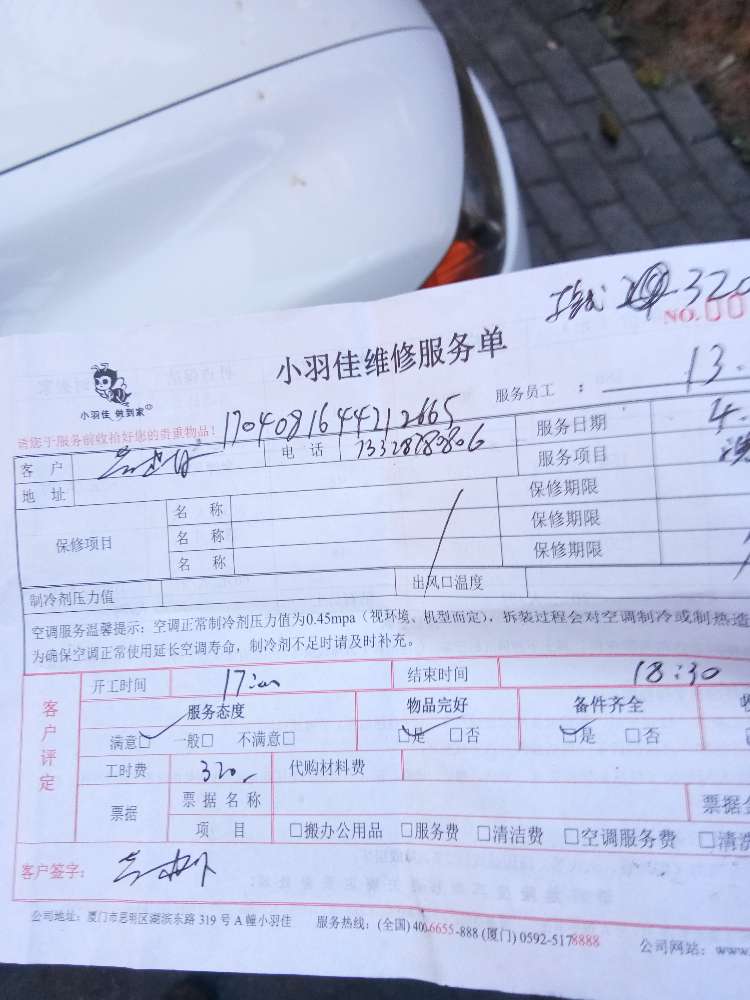 320
NO.00
小羽佳维修服务单
小羽佳 做到家
服务员工：13.
请您于服务前收拾好您的贵重物品！
17040816444212665
客 户 电 话 13328780806 服务日期 4.
地 址 服务项目 洗
保修项目 名 称 保修期限
名 称 保修期限
名 称 保修期限
制冷剂压力值 出风口温度
空调服务温馨提示：空调正常制冷剂压力值为0.45mpa（视环境、机型而定），拆装过程会对空调制冷或制热造
为确保空调正常使用延长空调寿命，制冷剂不足时请及时补充。
客户评定 开工时间 17:00 结束时间 18:30
服务态度 物品完好 备件齐全
满意□ 一般□ 不满意□ □是 □否 □是 □否
工时费 320 代购材料费
票据 票据名称 票据金
项 目 □搬办公用品 □服务费 □清洁费 □空调服务费 □清洗
客户签字：
公司地址：厦门市思明区湖滨东路 319 号 A 幢小羽佳 服务热线：(全国) 400-6655-888 (厦门) 0592-5178888 公司网站：www.